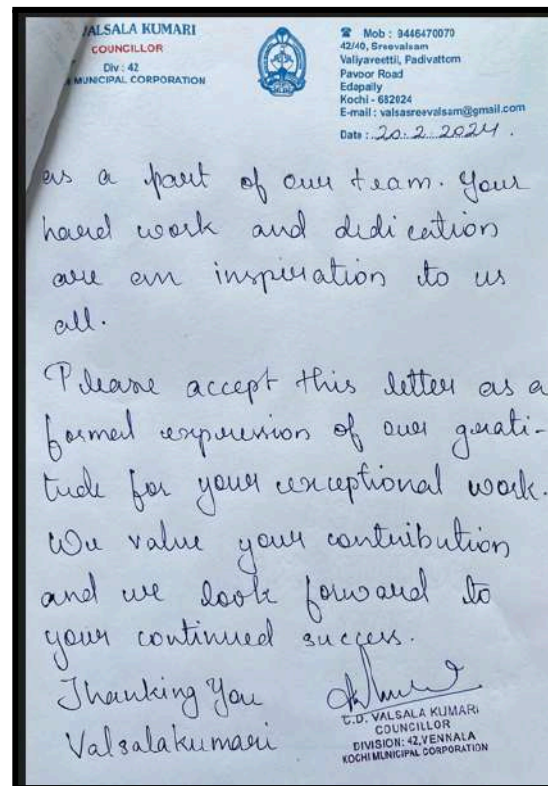 VALSALA KUMARI
COUNCILLOR
Div : 42
MUNICIPAL CORPORATION
Mob : 9446470070
42/40, Sreevalsam
Valiyaveettil, Padivattom
Pavoor Road
Edapally
Kochi - 682024
E-mail : valsasreevalsam@gmail.com
Date : 20.2.2024.
as a part of our team. Your
hard work and dedication
are an inspiration to us
all.
Please accept this letter as a
formal expression of our grati-
tude for your exceptional work.
We value your contribution
and we look forward to
your continued success.
Thanking You
Valsalakumari
C.D. VALSALA KUMARI
COUNCILLOR
DIVISION: 42, VENNALA
KOCHI MUNICIPAL CORPORATION